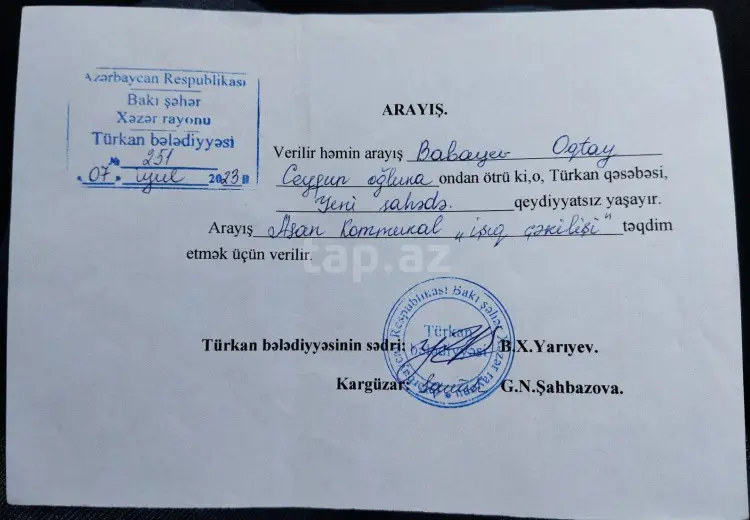 Azərbaycan Respublikası
Bakı şəhər
Xəzər rayonu
Türkan bələdiyyəsi
№ 251
"07" iyul 2023
ARAYIŞ.
Verilir həmin arayış Babayev Oqtay
Ceyhun oğluna ondan ötrü ki,o, Türkan qəsəbəsi,
Yeni sahədə. qeydiyyatsız yaşayır.
Arayış Asan Kommunal „işıq çəkilişi" təqdim
etmək üçün verilir.
tap.az
Respublikası Bakı şəhər Xəzər rayonu
Türkan
bələdiyyəsi
Türkan bələdiyyəsinin sədri: B.X.Yarıyev.
Kargüzar: G.N.Şahbazova.